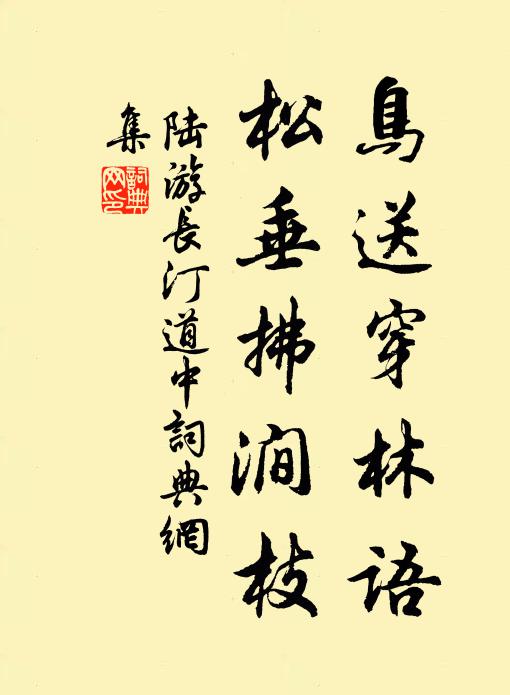 鳥送穿林語
松垂拂澗枝
陆游長汀道中詞典網
集
詞典网印